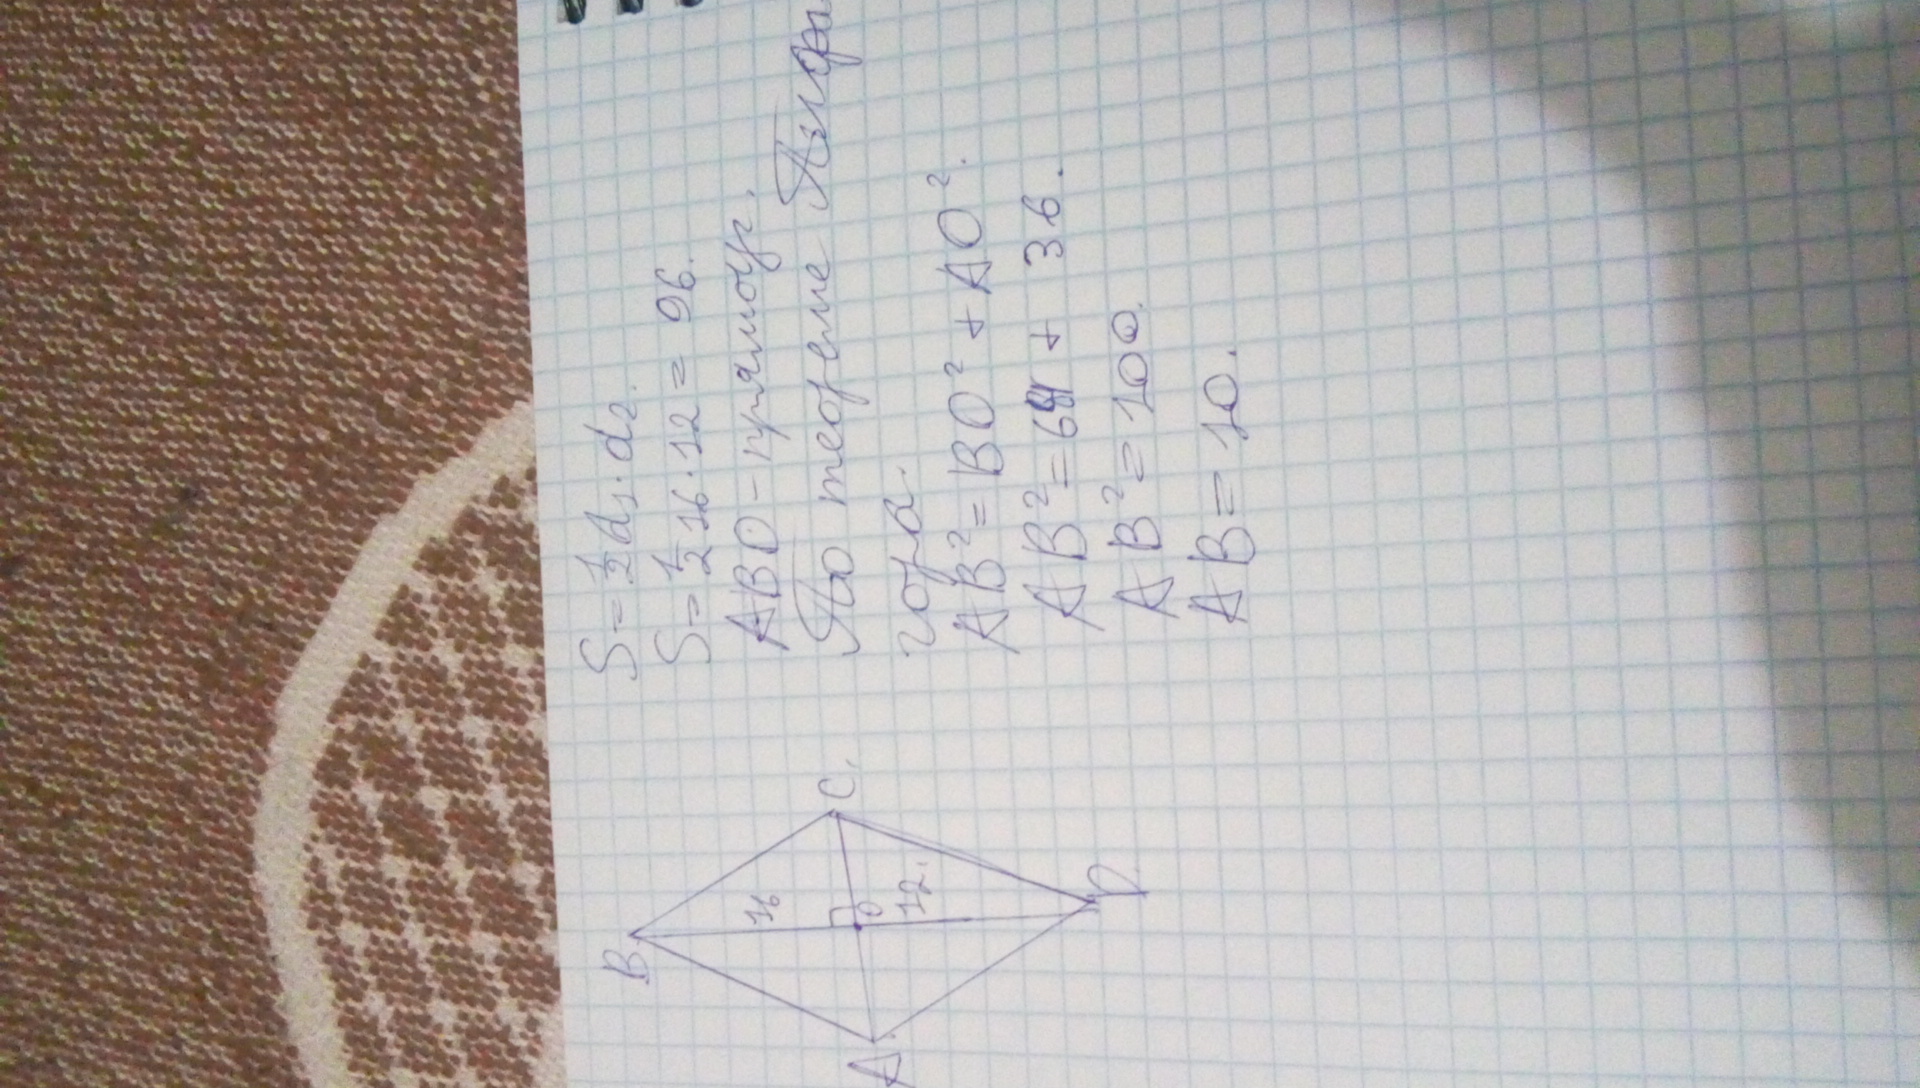 B
16
C.
O
12.
A
D
S = 1/2 d1 · d2.
S = 1/2 16 · 12 = 96.
ABO - прямоуг.
По теореме Пифа
гора.
AB² = BO² + AO².
AB² = 64 + 36.
AB² = 100.
AB = 10.